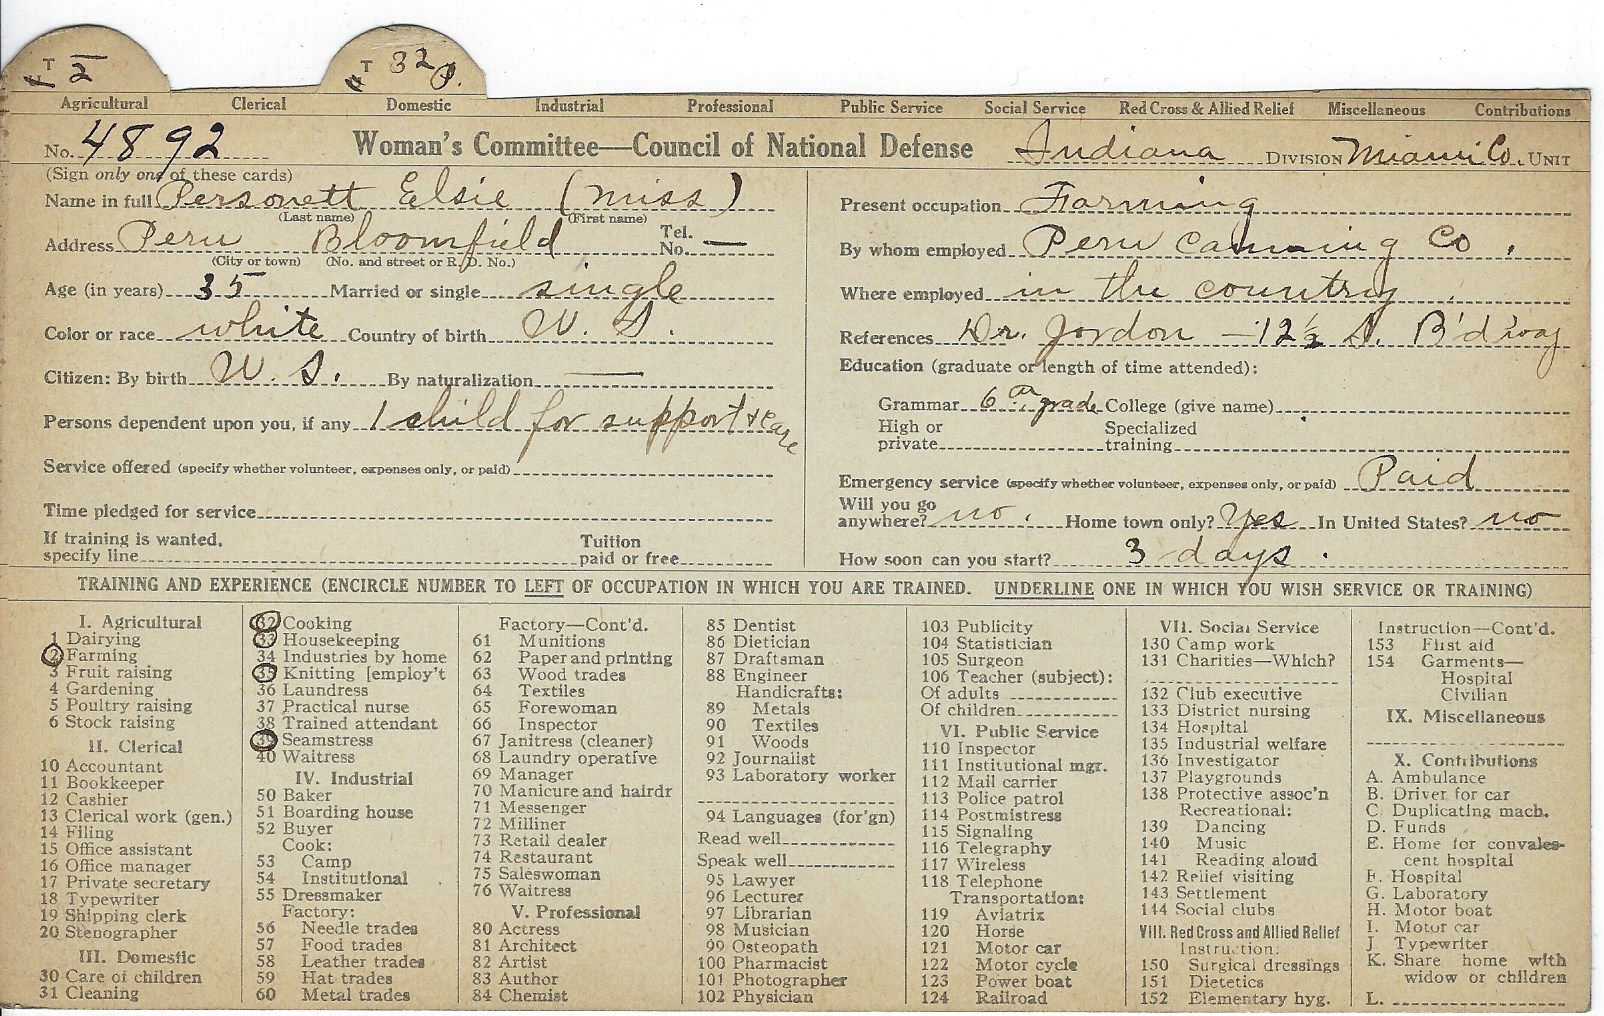 T 2 T 32
Agricultural Clerical Domestic Industrial Professional Public Service Social Service Red Cross & Allied Relief Miscellaneous Contributions
No. 4892 Woman's Committee—Council of National Defense Indiana DIVISION Miami Co. UNIT
(Sign only one of these cards)
Name in full Personett Elsie (Miss)
(Last name) (First name)
Address Peru Bloomfield Tel. No. —
(City or town) (No. and street or R. D. No.)
Age (in years) 35 Married or single single
Color or race white Country of birth U. S.
Citizen: By birth U. S. By naturalization —
Persons dependent upon you, if any 1 child for support & care
Service offered (specify whether volunteer, expenses only, or paid)
Time pledged for service
If training is wanted, specify line Tuition paid or free
Present occupation Farming
By whom employed Peru Canning Co.
Where employed in the country.
References Dr. Jordon — 12½ S. B'dway
Education (graduate or length of time attended):
Grammar 6th grade College (give name)
High or private Specialized training
Emergency service (specify whether volunteer, expenses only, or paid) Paid
Will you go anywhere? no. Home town only? Yes In United States? no
How soon can you start? 3 days.
TRAINING AND EXPERIENCE (ENCIRCLE NUMBER TO LEFT OF OCCUPATION IN WHICH YOU ARE TRAINED. UNDERLINE ONE IN WHICH YOU WISH SERVICE OR TRAINING)
I. Agricultural
1 Dairying
2 Farming
3 Fruit raising
4 Gardening
5 Poultry raising
6 Stock raising
II. Clerical
10 Accountant
11 Bookkeeper
12 Cashier
13 Clerical work (gen.)
14 Filing
15 Office assistant
16 Office manager
17 Private secretary
18 Typewriter
19 Shipping clerk
20 Stenographer
III. Domestic
30 Care of children
31 Cleaning
32 Cooking
33 Housekeeping
34 Industries by home
35 Knitting [employ't
36 Laundress
37 Practical nurse
38 Trained attendant
39 Seamstress
40 Waitress
IV. Industrial
50 Baker
51 Boarding house
52 Buyer
Cook:
53 Camp
54 Institutional
55 Dressmaker
Factory:
56 Needle trades
57 Food trades
58 Leather trades
59 Hat trades
60 Metal trades
Factory—Cont'd.
61 Munitions
62 Paper and printing
63 Wood trades
64 Textiles
65 Forewoman
66 Inspector
67 Janitress (cleaner)
68 Laundry operative
69 Manager
70 Manicure and hairdr
71 Messenger
72 Milliner
73 Retail dealer
74 Restaurant
75 Saleswoman
76 Waitress
V. Professional
80 Actress
81 Architect
82 Artist
83 Author
84 Chemist
85 Dentist
86 Dietician
87 Draftsman
88 Engineer
Handicrafts:
89 Metals
90 Textiles
91 Woods
92 Journalist
93 Laboratory worker
94 Languages (for'gn)
Read well
Speak well
95 Lawyer
96 Lecturer
97 Librarian
98 Musician
99 Osteopath
100 Pharmacist
101 Photographer
102 Physician
103 Publicity
104 Statistician
105 Surgeon
106 Teacher (subject):
Of adults
Of children
VI. Public Service
110 Inspector
111 Institutional mgr.
112 Mail carrier
113 Police patrol
114 Postmistress
115 Signaling
116 Telegraphy
117 Wireless
118 Telephone
Transportation:
119 Aviatrix
120 Horse
121 Motor car
122 Motor cycle
123 Power boat
124 Railroad
VII. Social Service
130 Camp work
131 Charities—Which?
132 Club executive
133 District nursing
134 Hospital
135 Industrial welfare
136 Investigator
137 Playgrounds
138 Protective assoc'n
Recreational:
139 Dancing
140 Music
141 Reading aloud
142 Relief visiting
143 Settlement
144 Social clubs
VIII. Red Cross and Allied Relief
Instruction:
150 Surgical dressings
151 Dietetics
152 Elementary hyg.
Instruction—Cont'd.
153 First aid
154 Garments—
Hospital
Civilian
IX. Miscellaneous
X. Contributions
A. Ambulance
B. Driver for car
C. Duplicating mach.
D. Funds
E. Home for convales-
cent hospital
F. Hospital
G. Laboratory
H. Motor boat
I. Motor car
J. Typewriter
K. Share home with
widow or children
L.